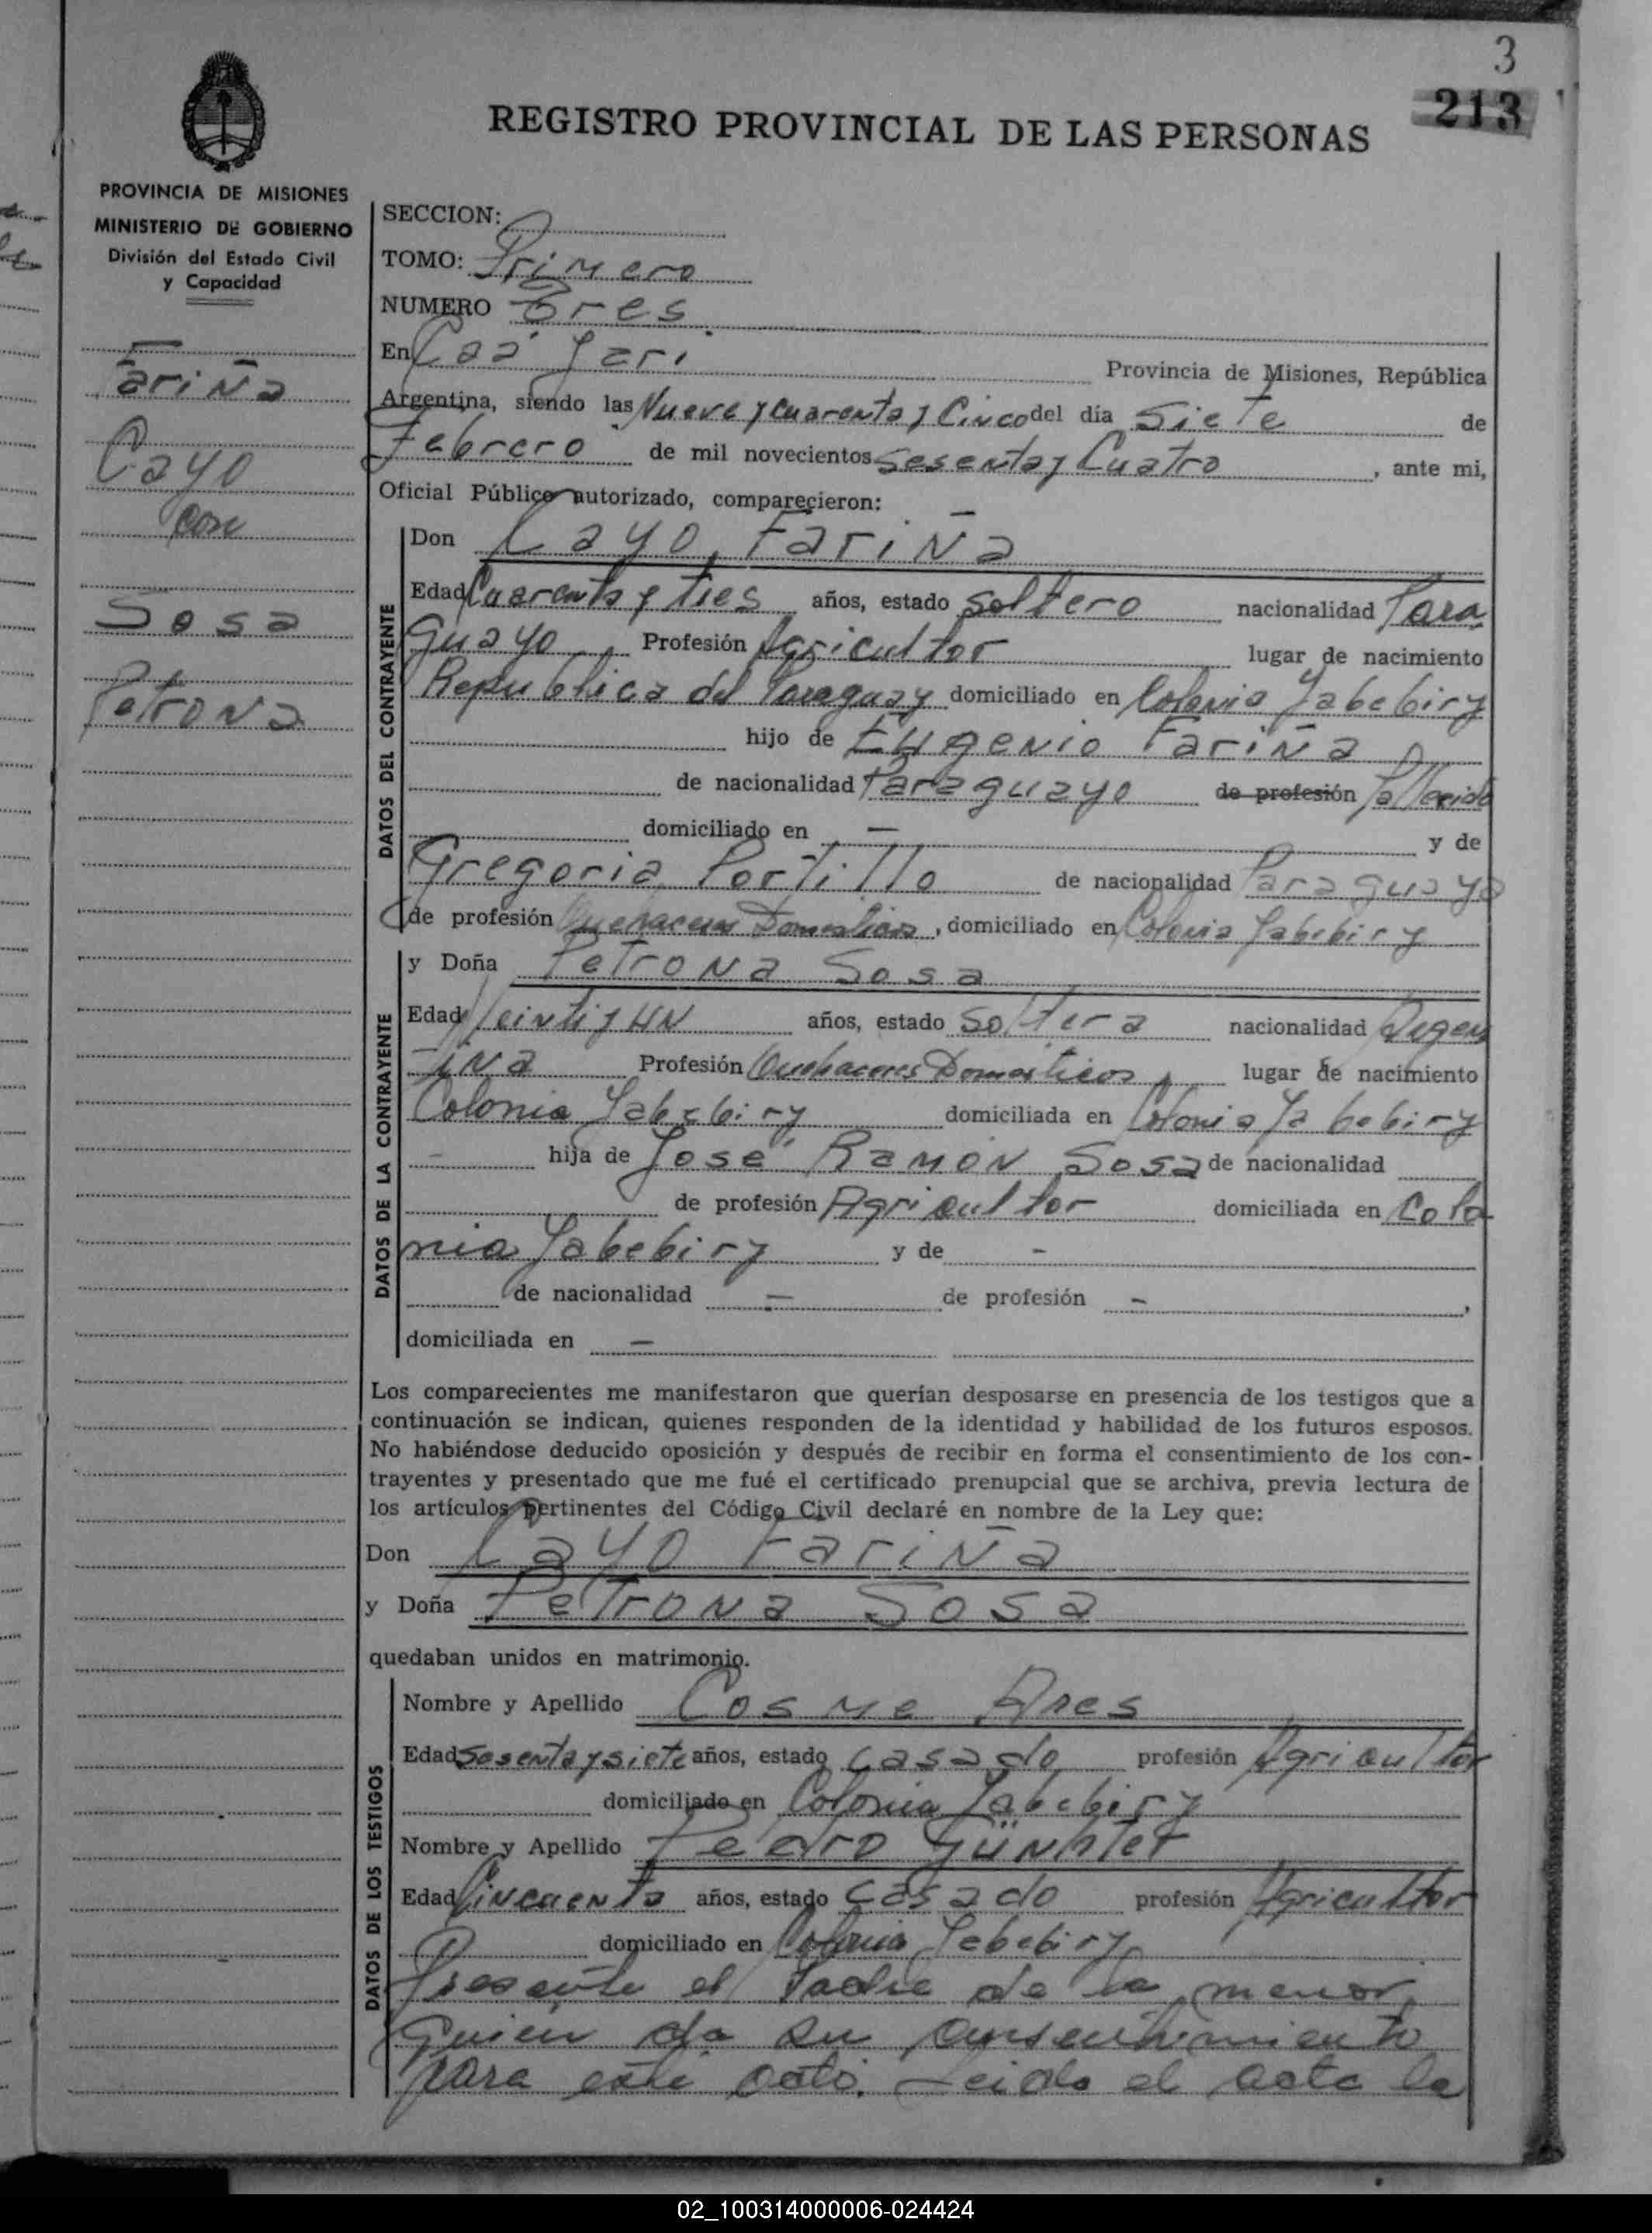 3
213
REGISTRO PROVINCIAL DE LAS PERSONAS
PROVINCIA DE MISIONES
MINISTERIO DE GOBIERNO
División del Estado Civil
y Capacidad
Fariña
Cayo
con
Sosa
Petrona
SECCION:
TOMO: Primero
NUMERO Tres
En Caá Yarí Provincia de Misiones, República
Argentina, siendo las Nueve y Cuarenta y Cinco del día Siete de
Febrero de mil novecientos Sesenta y Cuatro, ante mi,
Oficial Público autorizado, comparecieron:
DATOS DEL CONTRAYENTE
Don Cayo Fariña
Edad Cuarenta y tres años, estado Soltero nacionalidad Para
guayo Profesión Agricultor lugar de nacimiento
Republica del Paraguay domiciliado en Colonia Yabebiry
hijo de Eugenio Fariña
de nacionalidad Paraguayo de profesión fallecido
domiciliado en — y de
Gregoria Portillo de nacionalidad Paraguaya
de profesión Quehaceres Domesticos, domiciliado en Colonia Yabebiry
DATOS DE LA CONTRAYENTE
y Doña Petrona Sosa
Edad Veinti y un años, estado Soltera nacionalidad Argen
tina Profesión Quehaceres Domesticos lugar de nacimiento
Colonia Yabebiry domiciliada en Colonia Yabebiry
- hija de José Ramón Sosa de nacionalidad
de profesión Agricultor domiciliada en Colo
nia Yabebiry y de -
de nacionalidad — de profesión -,
domiciliada en —
Los comparecientes me manifestaron que querían desposarse en presencia de los testigos que a
continuación se indican, quienes responden de la identidad y habilidad de los futuros esposos.
No habiéndose deducido oposición y después de recibir en forma el consentimiento de los con-
trayentes y presentado que me fué el certificado prenupcial que se archiva, previa lectura de
los artículos pertinentes del Código Civil declaré en nombre de la Ley que:
Don Cayo Fariña
y Doña Petrona Sosa
quedaban unidos en matrimonio.
DATOS DE LOS TESTIGOS
Nombre y Apellido Cosme
Edad Sesenta y siete años, estado casado profesión Agricultor
domiciliado en Colonia Yabebiry
Nombre y Apellido Pedro Günhter
Edad Cincuenta años, estado Casado profesión Agricultor
domiciliado en Colonia Yabebiry
Presente el Padre de la menor
quien da su consentimiento
para este acto. Leida el acta la
02_100314000006-024424